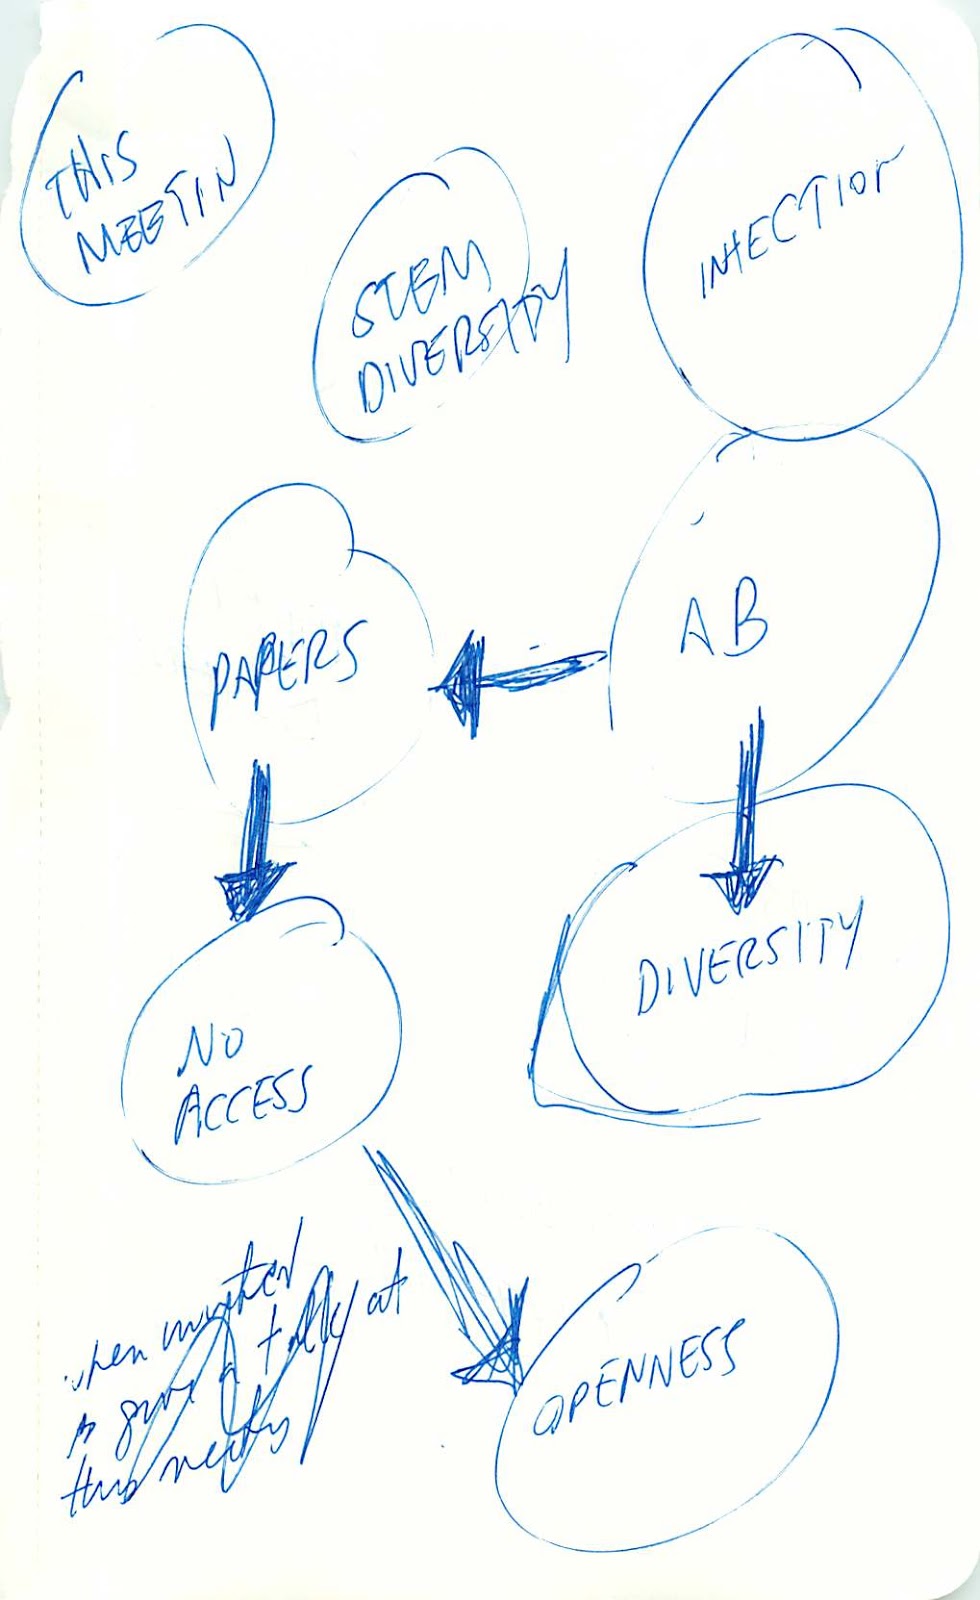 THIS
MEETIN
STEM
DIVERSITY
INJECTION
PAPERS
AB
DIVERSITY
NO
ACCESS
OPENNESS
when invited
to give a talk at
this meeting